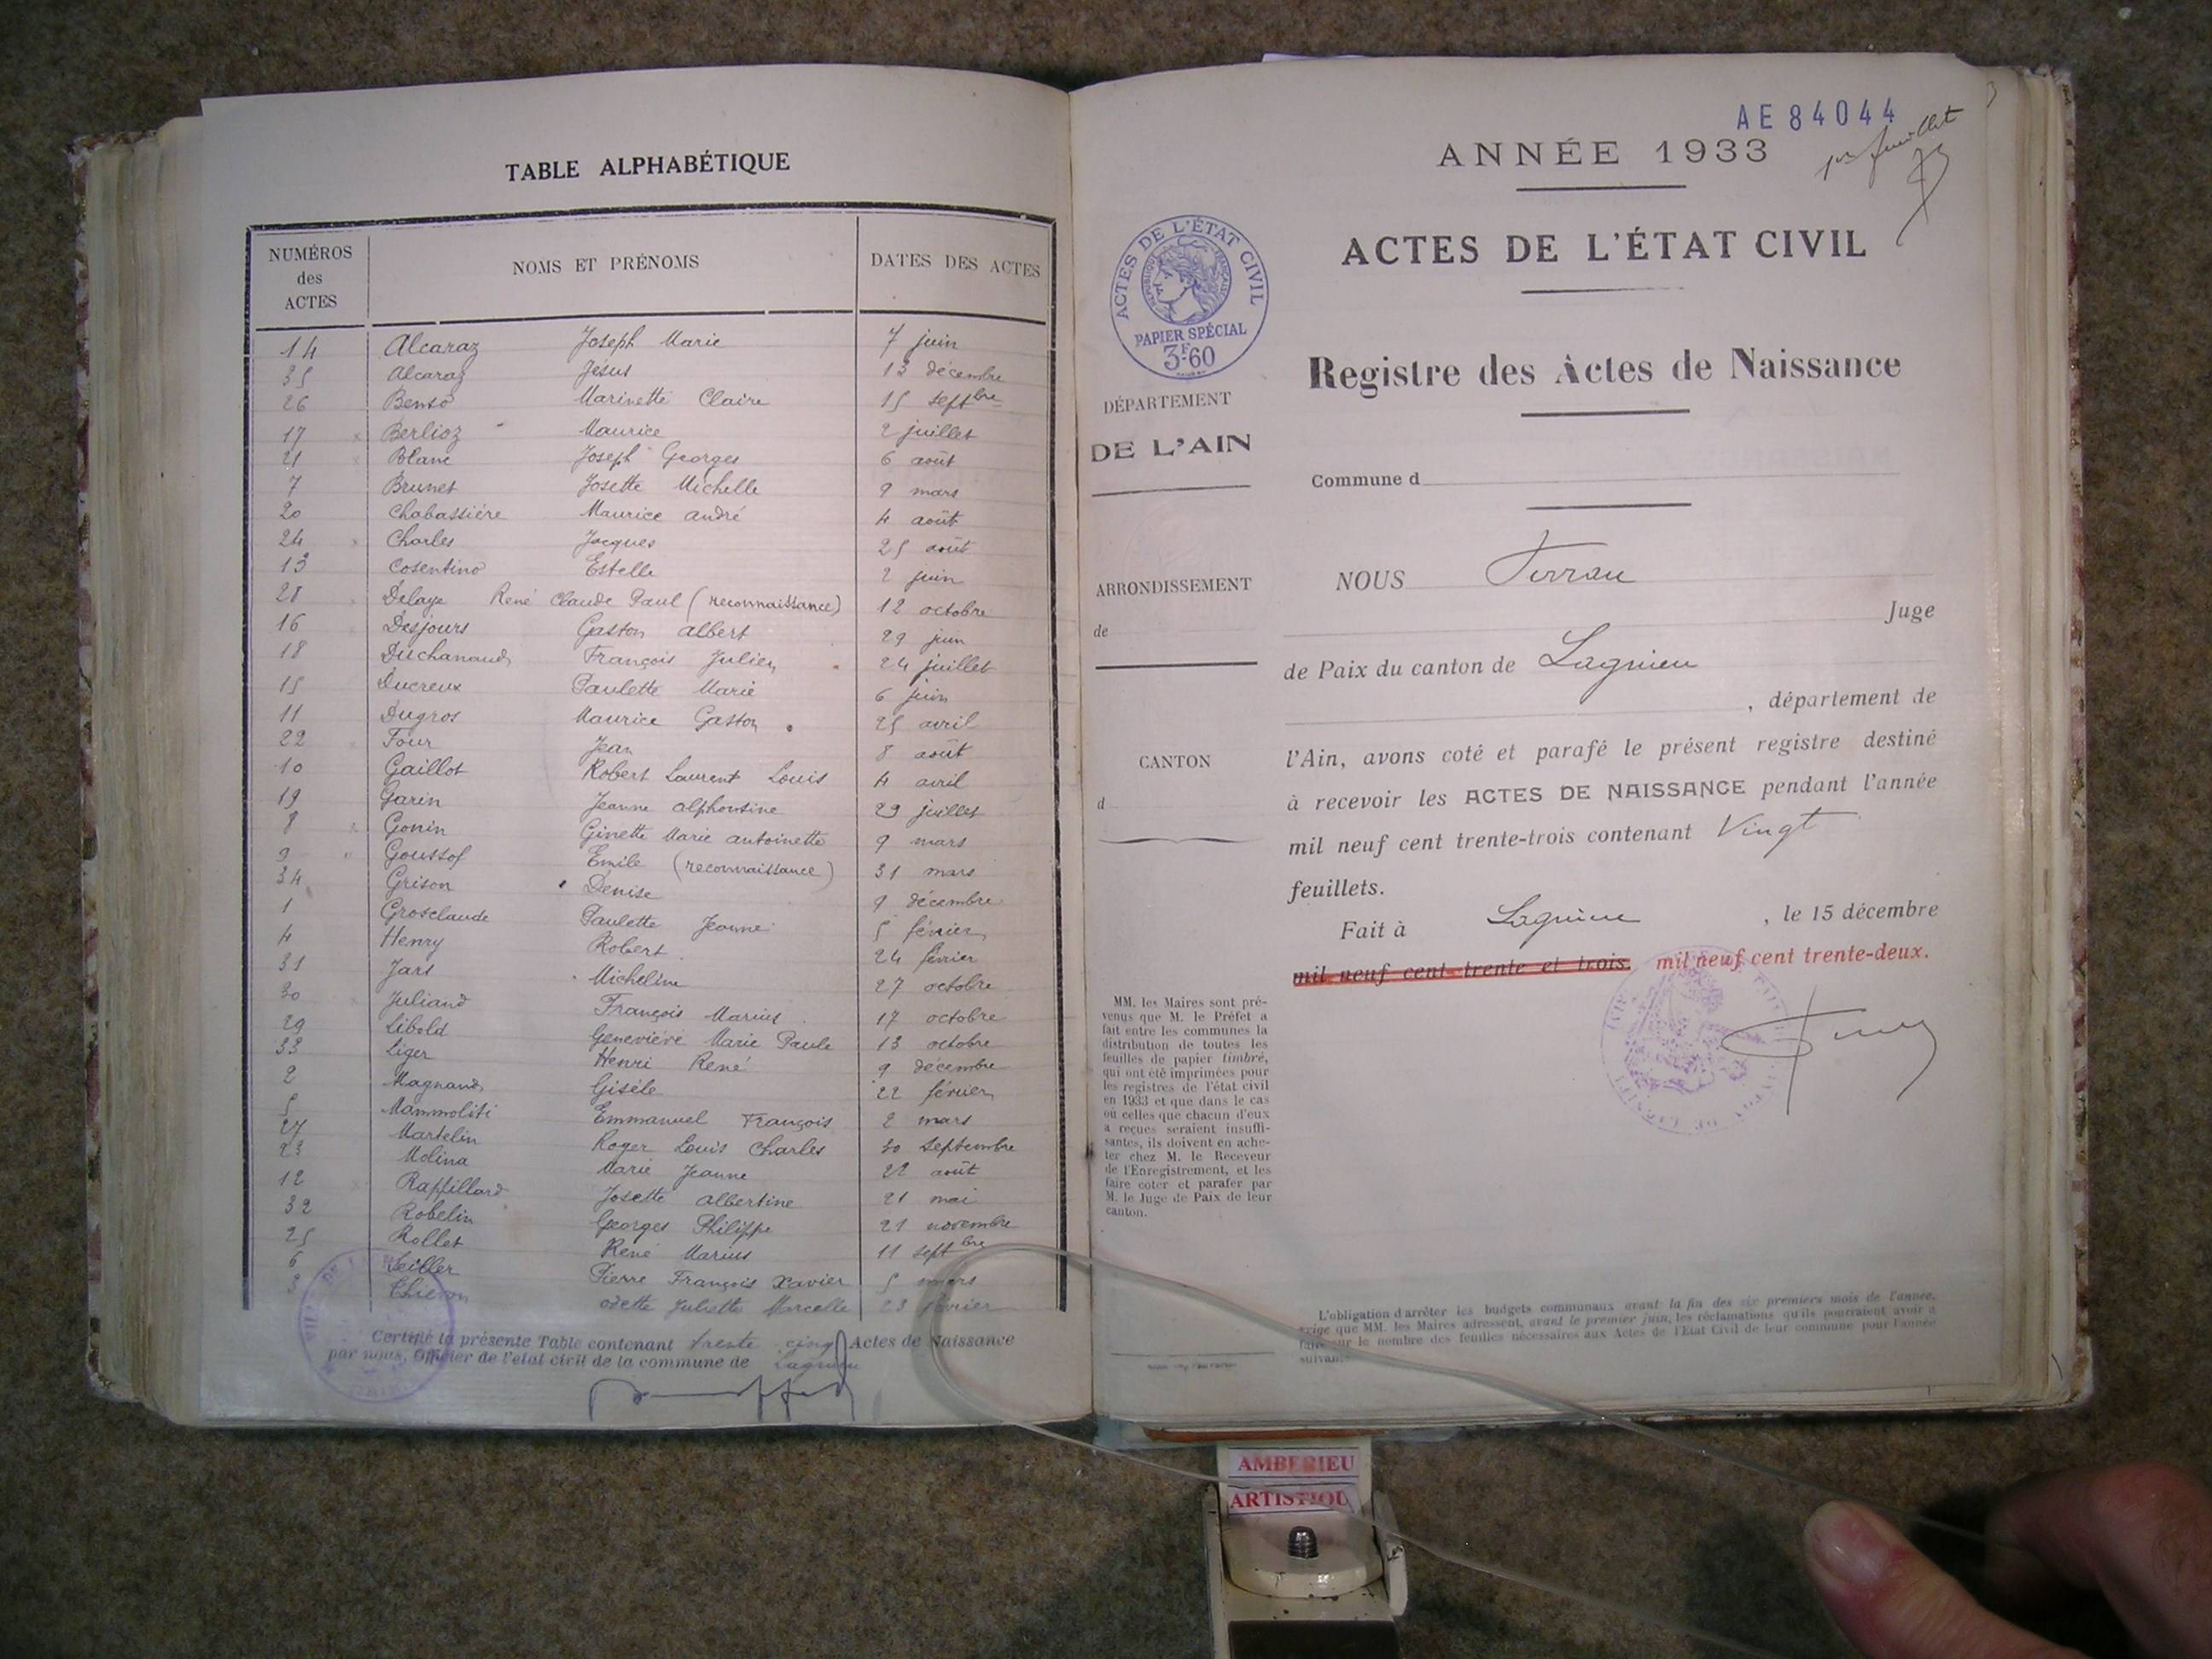 TABLE ALPHABÉTIQUE
NUMÉROS des ACTES NOMS ET PRÉNOMS DATES DES ACTES
14 Alcaraz Joseph Marie 7 juin
35 Alcaraz Jésus 13 décembre
26 Benso Marinette Claire 15 septbre
17 Berlioz Maurice 2 juillet
21 Blanc Joseph Georges 6 août
7 Brunet Josette Michelle 9 mars
20 Chabassière Maurice André 4 août
24 Charles Jacques 25 août
13 Cosentino Estelle 2 juin
28 Delaye René Claude Paul (reconnaissance) 12 octobre
16 Desjours Gaston Albert 29 juin
18 Duchanaud François Julien 24 juillet
15 Ducreux Paulette Marie 6 juin
11 Dugros Maurice Gaston 25 avril
22 Four Jean 8 août
10 Gaillot Robert Laurent Louis 4 avril
19 Garin Jeanne Alphonsine 29 juillet
8 Gonin Ginette Marie Antoinette 9 mars
9 Goussof Emile (reconnaissance) 31 mars
34 Grison Denise 9 décembre
1 Grosclaude Paulette Jeanne 5 février
4 Henry Robert 24 février
31 Jars Micheline 27 octobre
30 Juliand François Marius 17 octobre
29 Libold Geneviève Marie Paule 13 octobre
33 Liger Henri René 9 décembre
2 Magnand Gisèle 22 février
5 Mammoliti Emmanuel François 2 mars
27 Martelin Roger Louis Charles 30 septembre
23 Molina Marie Jeanne 22 août
12 Rappillard Josette Albertine 21 mai
32 Robelin Georges Philippe 21 novembre
25 Rollet René Marius 11 septbre
6 Seiller Pierre François Xavier 5 mars
3 Odette Juliette Marcelle 23 février
Certifié la présente Table contenant trente cinq Actes de Naissance
par nous, Officier de l'état civil de la commune de Lagnieu
AE 84044
1er feuillet
ANNÉE 1933
ACTES DE L'ÉTAT CIVIL
Registre des Actes de Naissance
ACTES DE L'ÉTAT CIVIL
RÉPUBLIQUE FRANÇAISE
PAPIER SPÉCIAL
3F-60
DÉPARTEMENT
DE L'AIN
ARRONDISSEMENT
de
CANTON
d
Commune d
NOUS Ferrau
Juge
de Paix du canton de Lagnieu
, département de
l'Ain, avons coté et parafé le présent registre destiné
à recevoir les ACTES DE NAISSANCE pendant l'année
mil neuf cent trente-trois contenant Vingt
feuillets.
Fait à Lagnieu , le 15 décembre
mil neuf cent trente et trois. mil neuf cent trente-deux.
MM. les Maires sont pré-
venus que M. le Préfet a
fait entre les communes la
distribution de toutes les
feuilles de papier timbré,
qui ont été imprimées pour
les registres de l'état civil
en 1933 et que dans le cas
où celles que chacun d'eux
a reçues seraient insuffi-
santes, ils doivent en ache-
ter chez M. le Receveur
de l'Enregistrement, et les
faire coter et parafer par
M. le Juge de Paix de leur
canton.
L'obligation d'arrêter les budgets communaux avant la fin des six premiers mois de l'année,
exige que MM. les Maires adressent, avant le premier juin, les réclamations qu'ils pourraient avoir à
faire sur le nombre des feuilles nécessaires aux Actes de l'État Civil de leur commune pour l'année
suivante.
AMBERIEU
ARTISTIQU